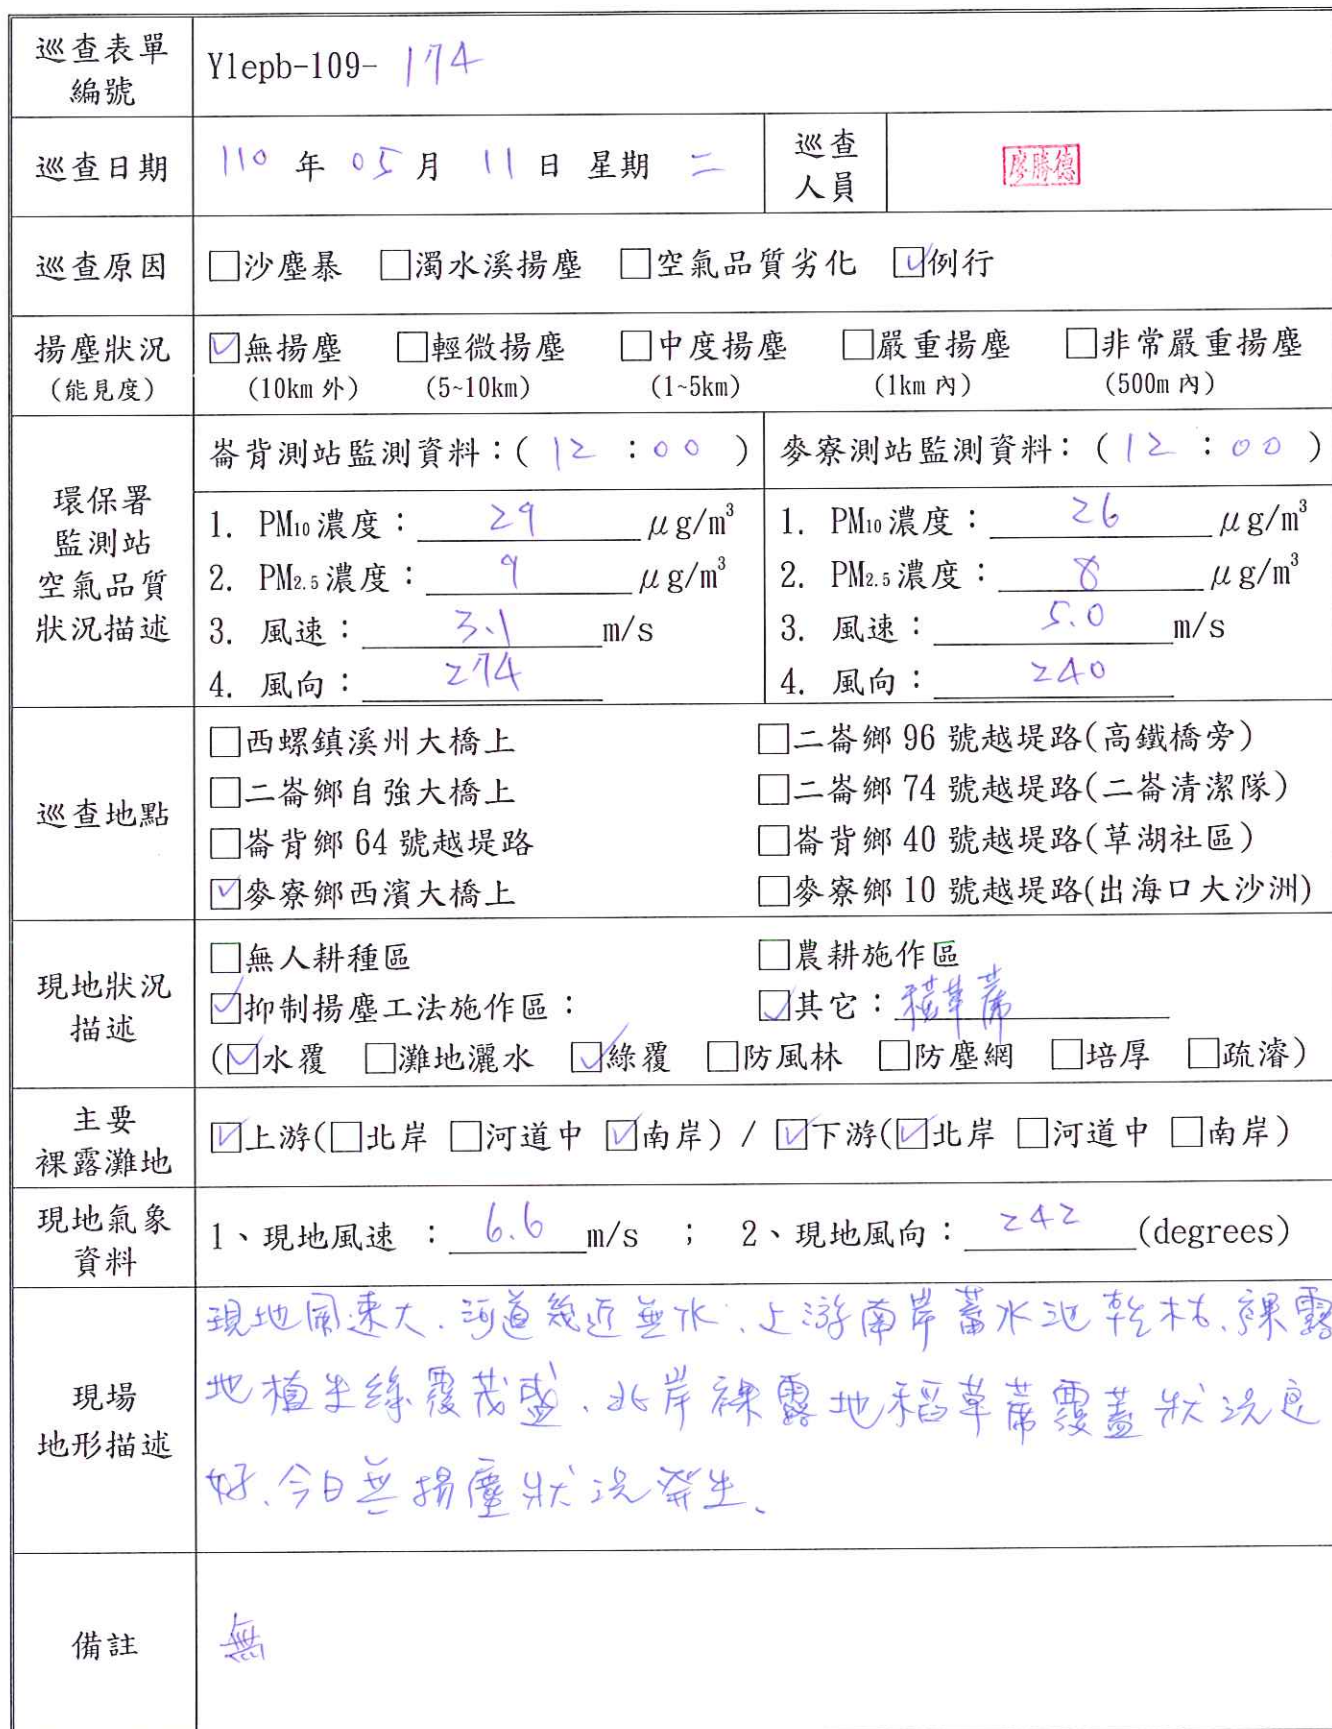 巡查表單
編號
Ylepb-109- 174
巡查日期
110 年 05 月 11 日 星期 二
巡查
人員
廖勝德
巡查原因
□沙塵暴 □濁水溪揚塵 □空氣品質劣化 ☑例行
揚塵狀況
(能見度)
☑無揚塵 □輕微揚塵 □中度揚塵 □嚴重揚塵 □非常嚴重揚塵
(10km 外) (5~10km) (1~5km) (1km 內) (500m 內)
環保署
監測站
空氣品質
狀況描述
崙背測站監測資料：( 12 ：00 )
1. PM10 濃度： 29 μg/m³
2. PM2.5 濃度： 9 μg/m³
3. 風速： 3.1 m/s
4. 風向： 274
麥寮測站監測資料：( 12 ：00 )
1. PM10 濃度： 26 μg/m³
2. PM2.5 濃度： 8 μg/m³
3. 風速： 5.0 m/s
4. 風向： 240
巡查地點
□西螺鎮溪州大橋上 □二崙鄉 96 號越堤路(高鐵橋旁)
□二崙鄉自強大橋上 □二崙鄉 74 號越堤路(二崙清潔隊)
□崙背鄉 64 號越堤路 □崙背鄉 40 號越堤路(草湖社區)
☑麥寮鄉西濱大橋上 □麥寮鄉 10 號越堤路(出海口大沙洲)
現地狀況
描述
□無人耕種區 □農耕施作區
☑抑制揚塵工法施作區： ☑其它：稻草蓆
(☑水覆 □灘地灑水 ☑綠覆 □防風林 □防塵網 □培厚 □疏濬)
主要
裸露灘地
☑上游(□北岸 □河道中 ☑南岸) / ☑下游(☑北岸 □河道中 □南岸)
現地氣象
資料
1、現地風速 ： 6.6 m/s ； 2、現地風向： 242 (degrees)
現場
地形描述
現地風速大、河道幾近無水、上游南岸蓄水池乾枯、裸露
地植生綠覆茂盛、北岸裸露地稻草蓆覆蓋狀況良
好、今日無揚塵狀況發生、
備註
無